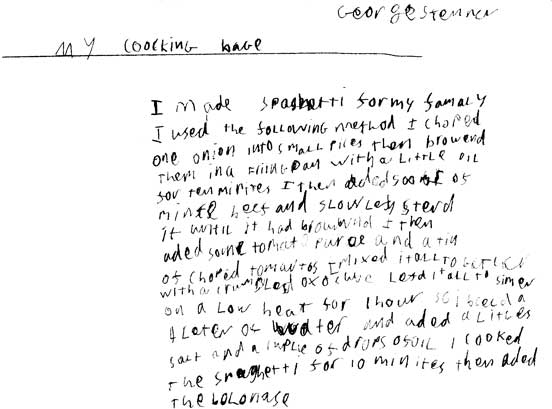 George Stenner
MY COOCKING bage
I made spaghetti for my famaly
I used the following method I choped
one onion into small pices then browend
them in a friing pan with a little oil
for ten minites I then added 500g of
minte beef and slowley sterd
it until it had brownd I then
aded some tomato puree and a tin
of choped tomartos I mixed it all to
with a crumbled oxocube Leftd it all to simer
on a low heat for 1 hour so i
a Liter of water and aded a Litles
salt and a cuple of drops of oil I cooked
the spaghetti for 10 minites then aded
the bolonase